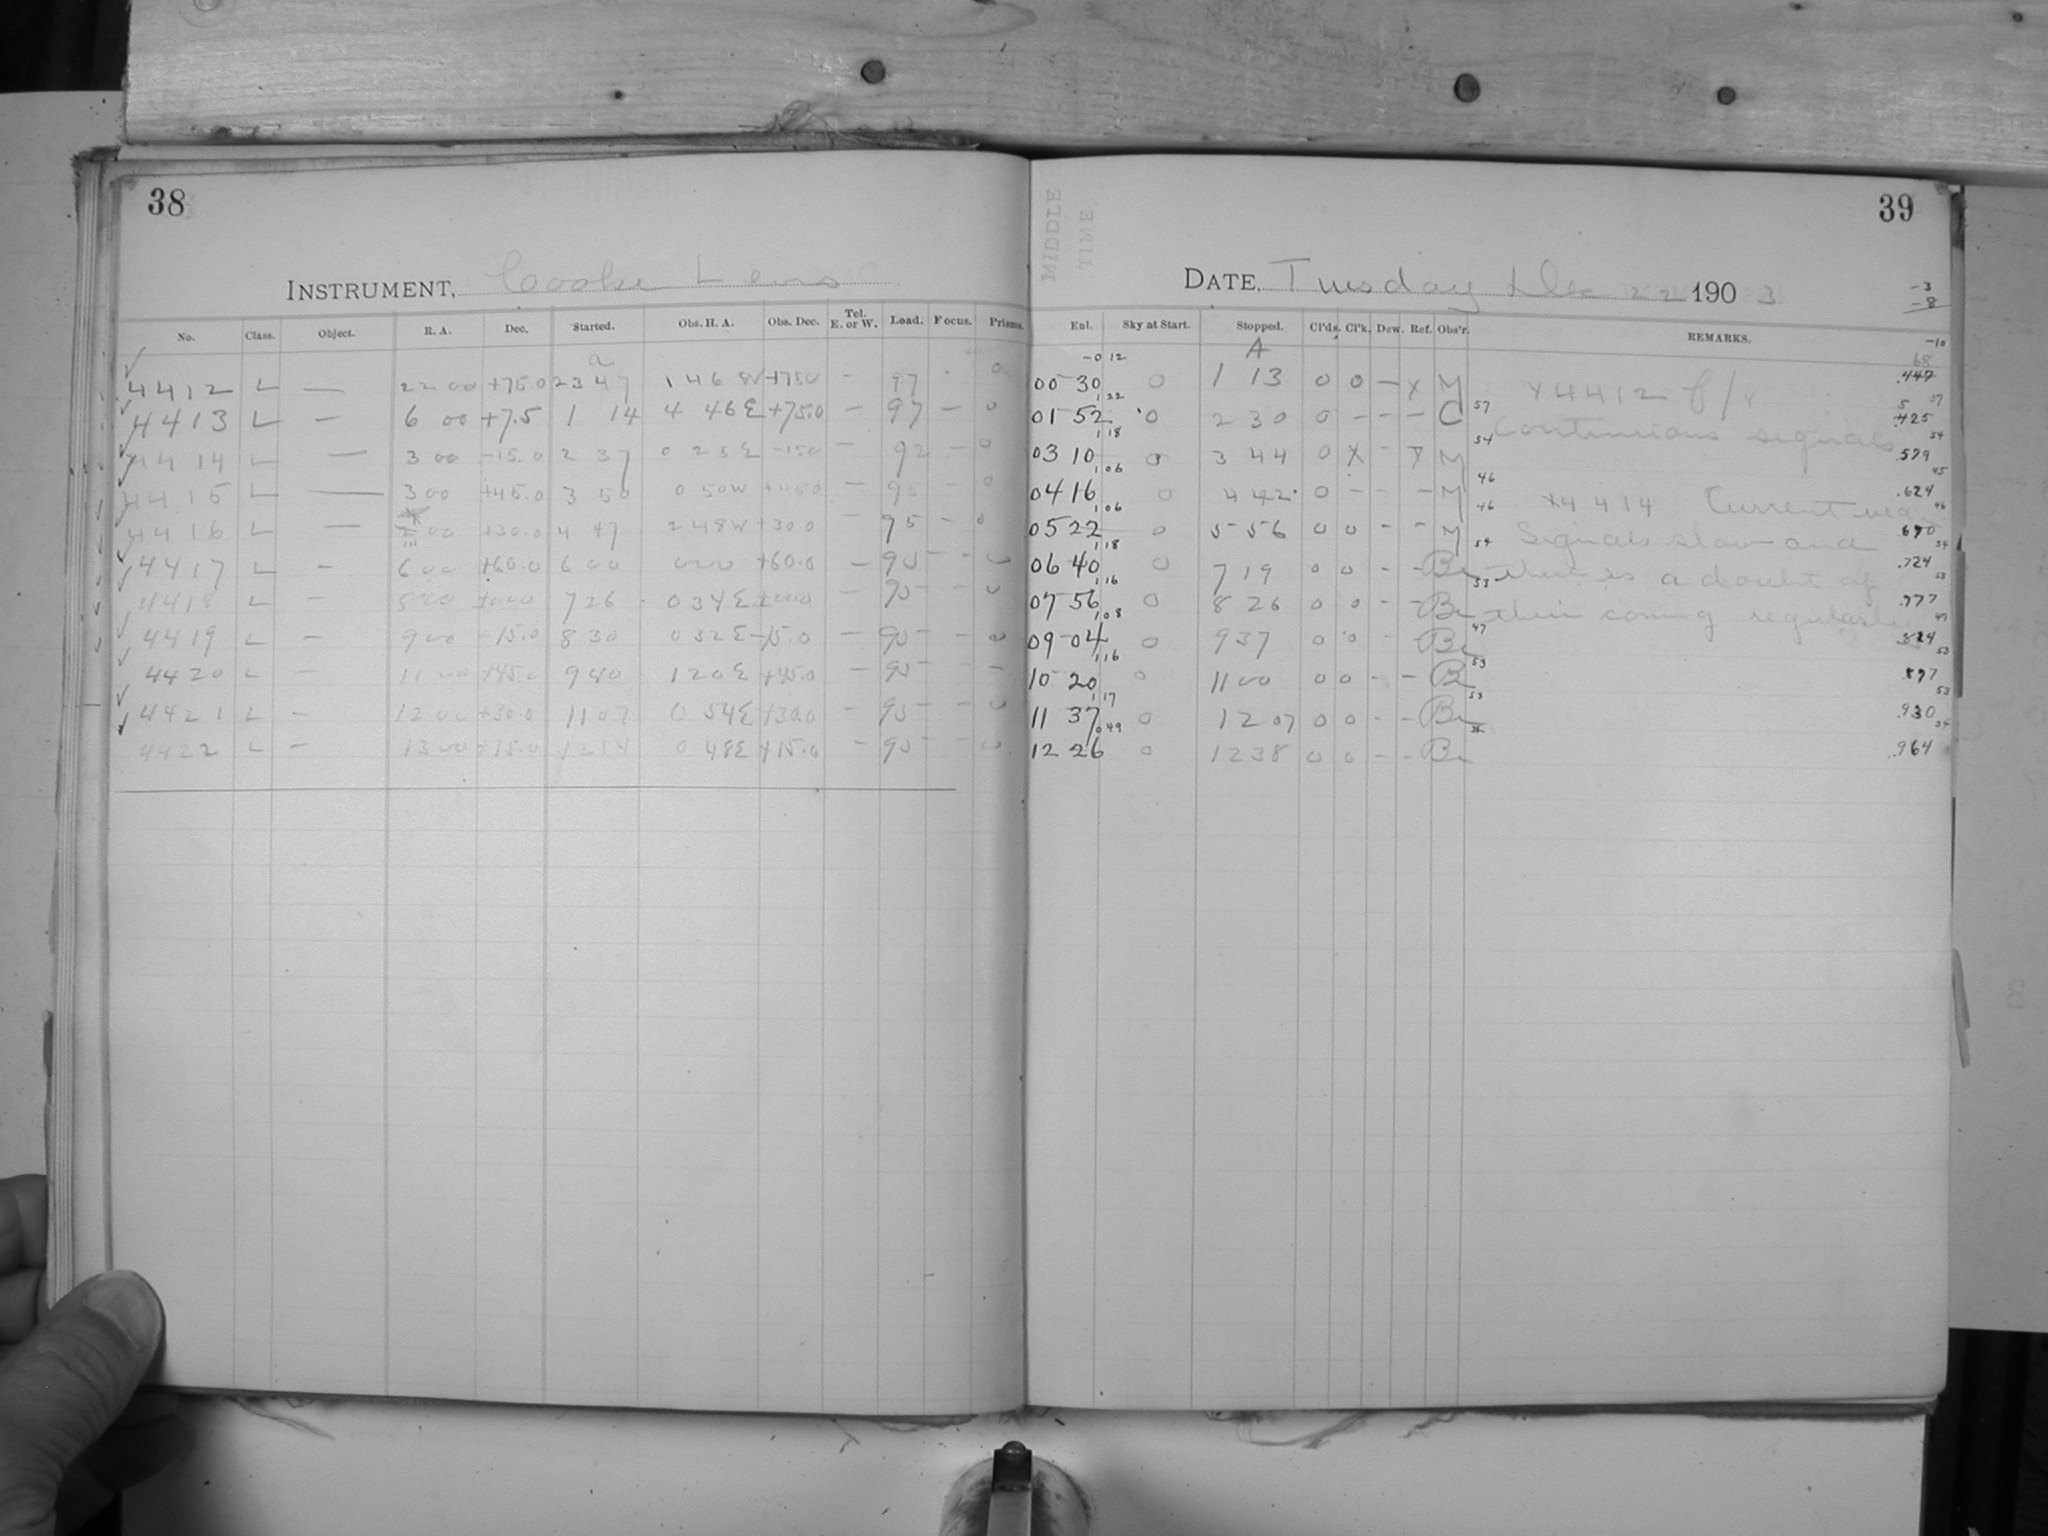 38
INSTRUMENT, Cooke Lens
No. Class. Object. R. A. Dec. Started. Obs. H. A. Obs. Dec. Tel. E. or W. Load. Focus. Prisms.
a
4412 L — 22 00 +75.0 23 47 1 46 W +75.0 — 97 0
4413 L — 6 00 +7.5 1 14 4 46 E +75.0 — 97 — 0
4414 L — 3 00 -15.0 2 37 0 25 E -15.0 — 92 — 0
4415 L — 3 00 +45.0 3 50 0 50 W +45.0 — 95 — 0
4416 L — 00 +30.0 4 47 2 48 W +30.0 — 95 — 0
4417 L — 6 00 +60.0 6 00 0 00 +60.0 — 90 — 0
4418 L — 7 26 0 34 E — 90 — 0
4419 L — 9 00 -15.0 8 30 0 32 E -15.0 — 90 — 0
4420 L — 11 00 +45.0 9 40 1 20 E +45.0 — 90 — —
4421 L — 12 00 +30.0 11 07 0 54 E +30.0 — 90 — 0
4422 L — 13 00 +15.0 12 14 0 48 E +15.0 — 90 — 0
39
MIDDLE
TIME.
DATE, Tuesday Dec 22 1903
-3
-8
Enl. Sky at Start. Stopped. Cl'ds. Cl'k. Dew. Ref. Obs'r. REMARKS.
-10
-0 12 A 68
00 30 0 1 13 0 0 — X M X4412 .447
1 22 57 5 57
01 52 0 2 30 0 — — — C 425
1 18 54 Continuous signals 54
03 10 0 3 44 0 X - X M .579
1 06 46 45
04 16 0 4 42 0 — — — M X4414 Current .624
1 06 46 46
05 22 0 5 56 0 0 - - M Signals slow and 670
1 18 54 54
06 40 0 7 19 0 0 - - Br there is a doubt of .724
1 16 53 53
07 56 0 8 26 0 0 - - Br their coming regularly .777
1 08 47 47
09 04 0 9 37 0 0 - Br 824
1 16 53 53
10 20 0 11 00 0 0 - - Br 877
1 17 53 53
11 37 0 12 07 0 0 - - Br .930
0 49 34 34
12 26 0 12 38 0 0 - - Br .964